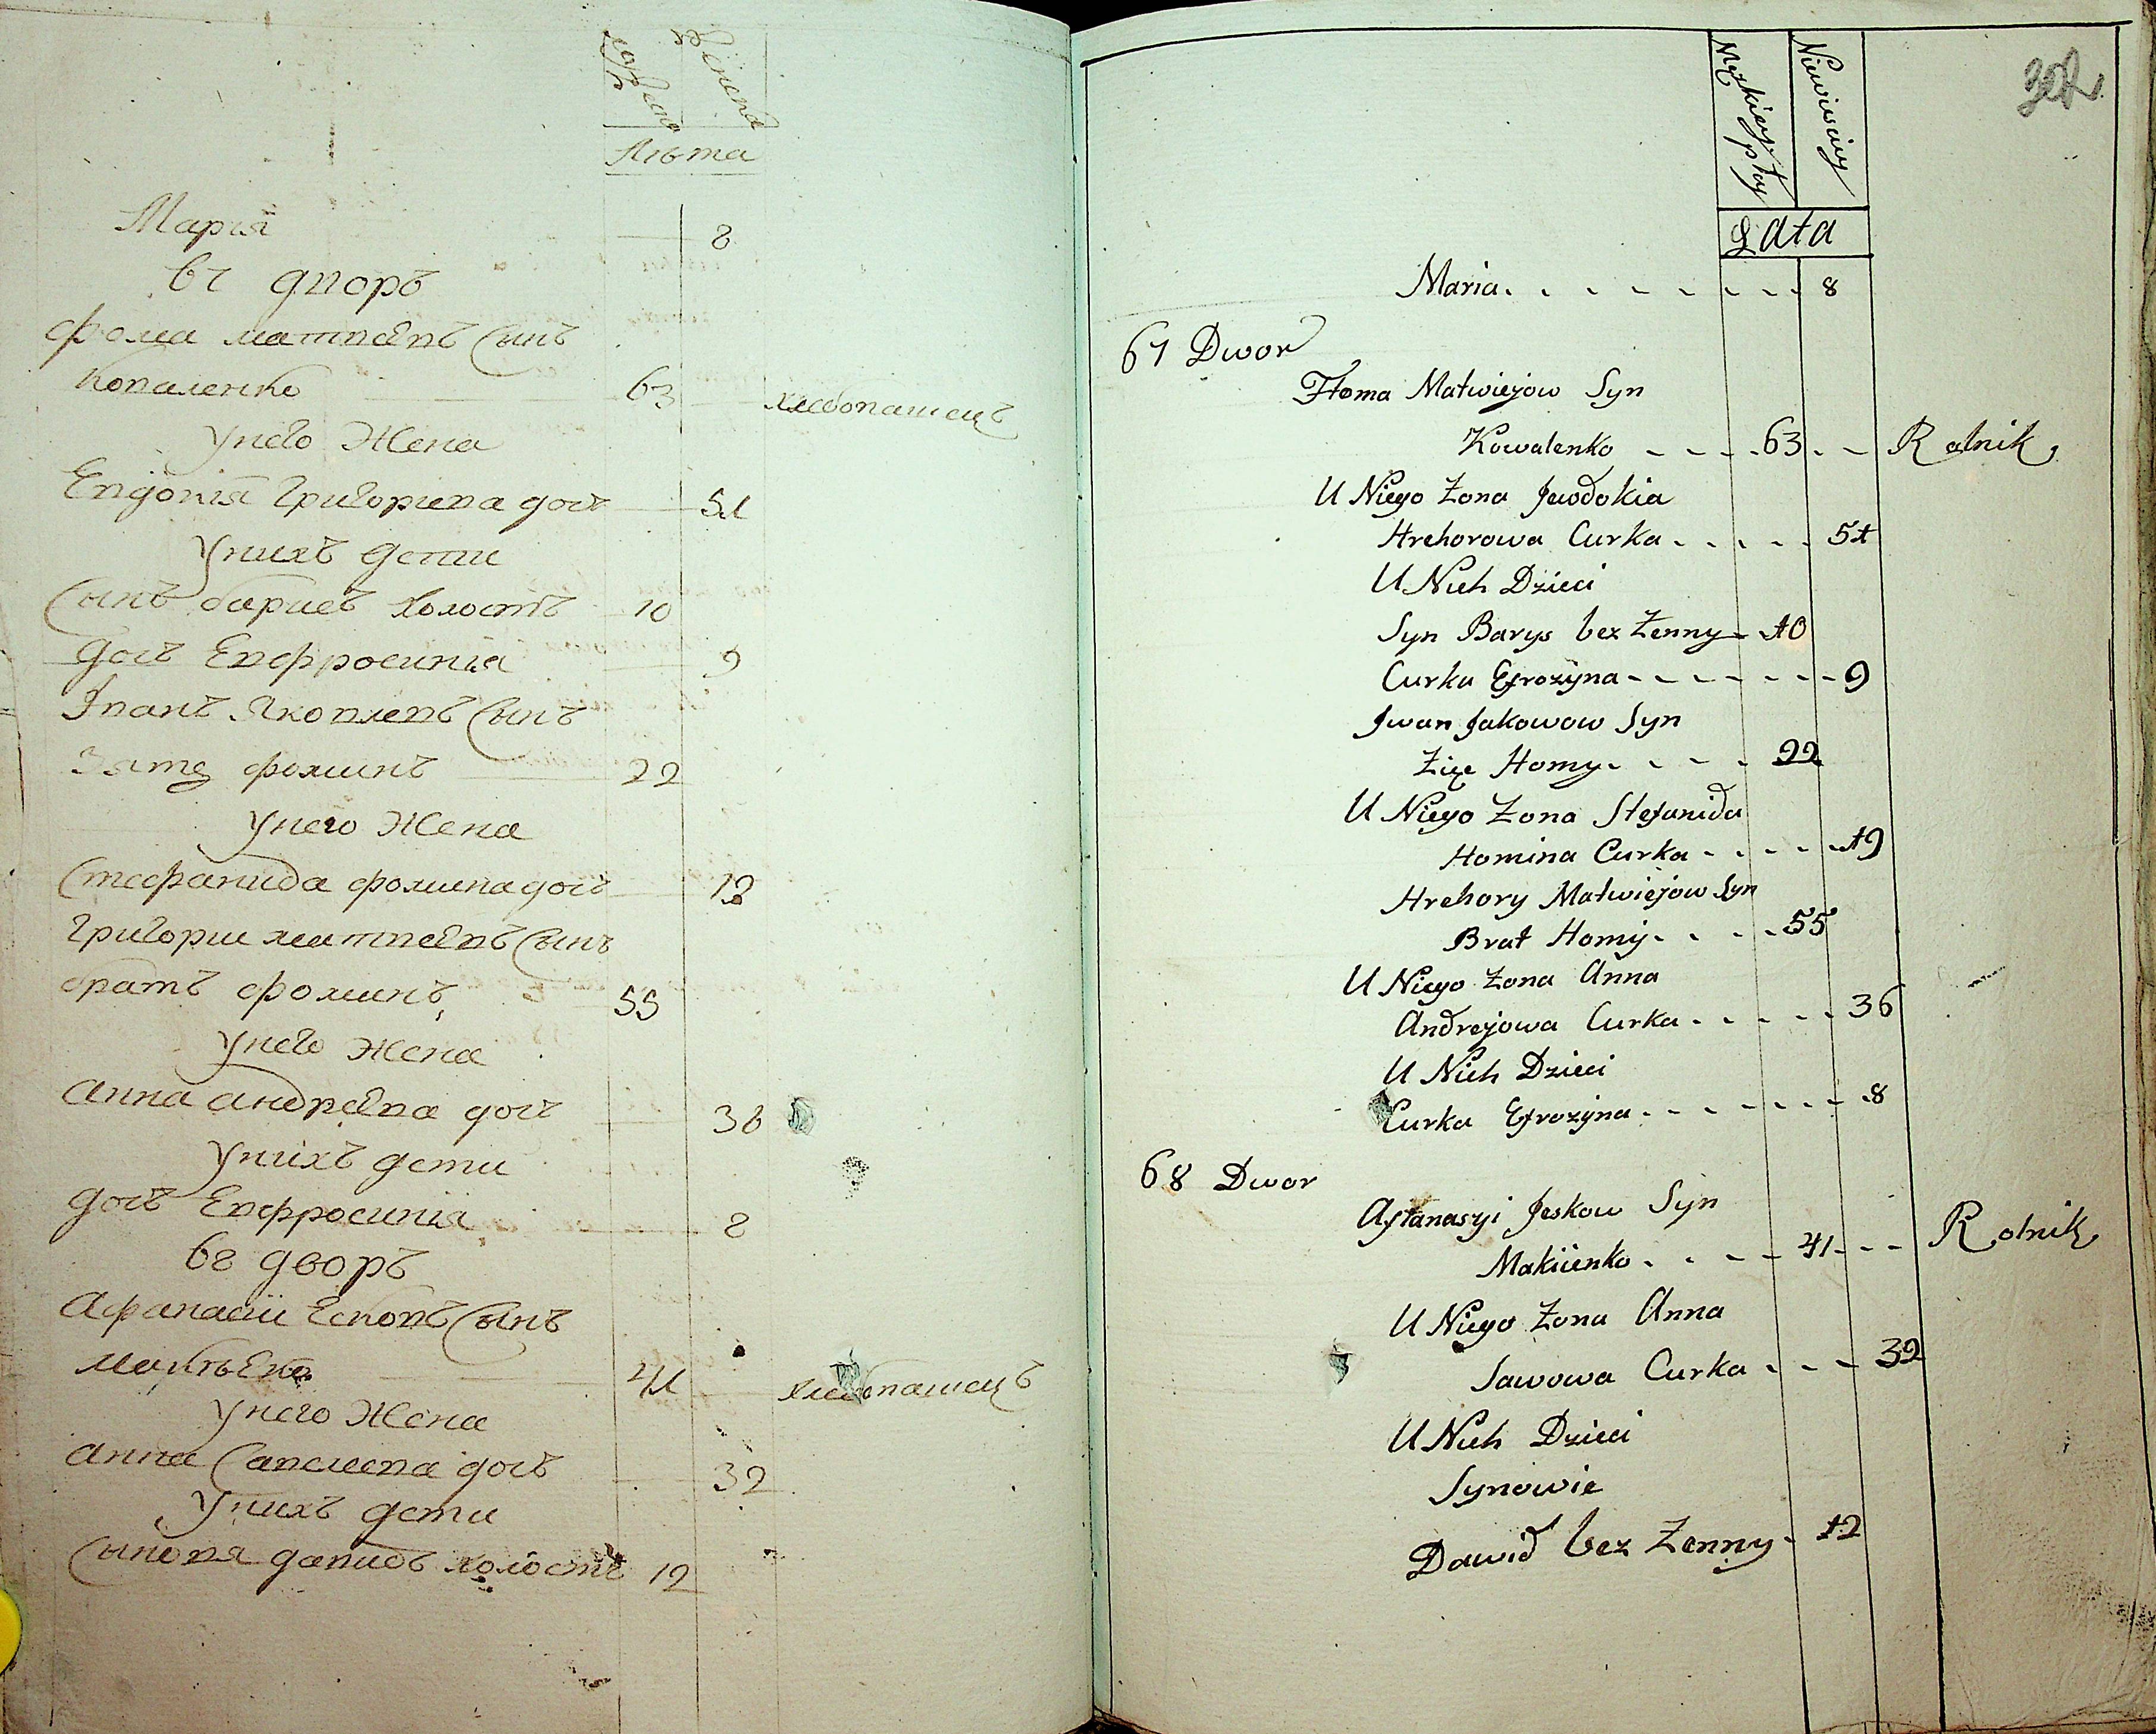 женска
лѣта
Мария 8
67 дворъ
фома матвѣевъ Сынъ
коваленко 63 хлебопашецъ
унего Жена
Евдокия Григориева дочъ 51
унихъ дети
Сынъ барисъ холостъ 10
дочъ Евфросиния 9
Иванъ Яковлевъ Сынъ
Зять фоминъ 22
унего Жена
Стефанида фомина дочъ 19
Григории матвѣевъ Сынъ
братъ фоминъ 55
унего Жена
анна андрѣева дочъ 36
унихъ дети
дочъ Евфросиния 8
68 дворъ
афанасии Есковъ Сынъ
макѣенко 41 хлебопашецъ
унего Жена
анна Савелева дочъ 32
унихъ дети
Сыновя давидъ холостъ 12
Męzkiey płcy Niewiesciey
Lata
Maria 8
67 Dwor
Ftoma Matwiejow Syn
Kowalenko 63 Rolnik
U Niego Zona Jewdokia
Hrehorowa Curka 51
U Nich Dzieci
Syn Barys bez Zenny 10
Curka Efrozyna 9
Jwan Jakowow Syn
Zięc Homy 22
U Niego Zona Stefanida
Homina Curka 19
Hrehory Matwiejow Syn
Brat Homy 55
U Niego Zona Anna
Andrejowa Curka 36
U Nich Dzieci
Curka Efrozyna 8
68 Dwor
Aftanasyi Jeskow Syn
Makiienko 41 Rolnik
U Niego Zona Anna
Sawowa Curka 32
U Nich Dzieci
Synowie
Dawid bez Zenny 12